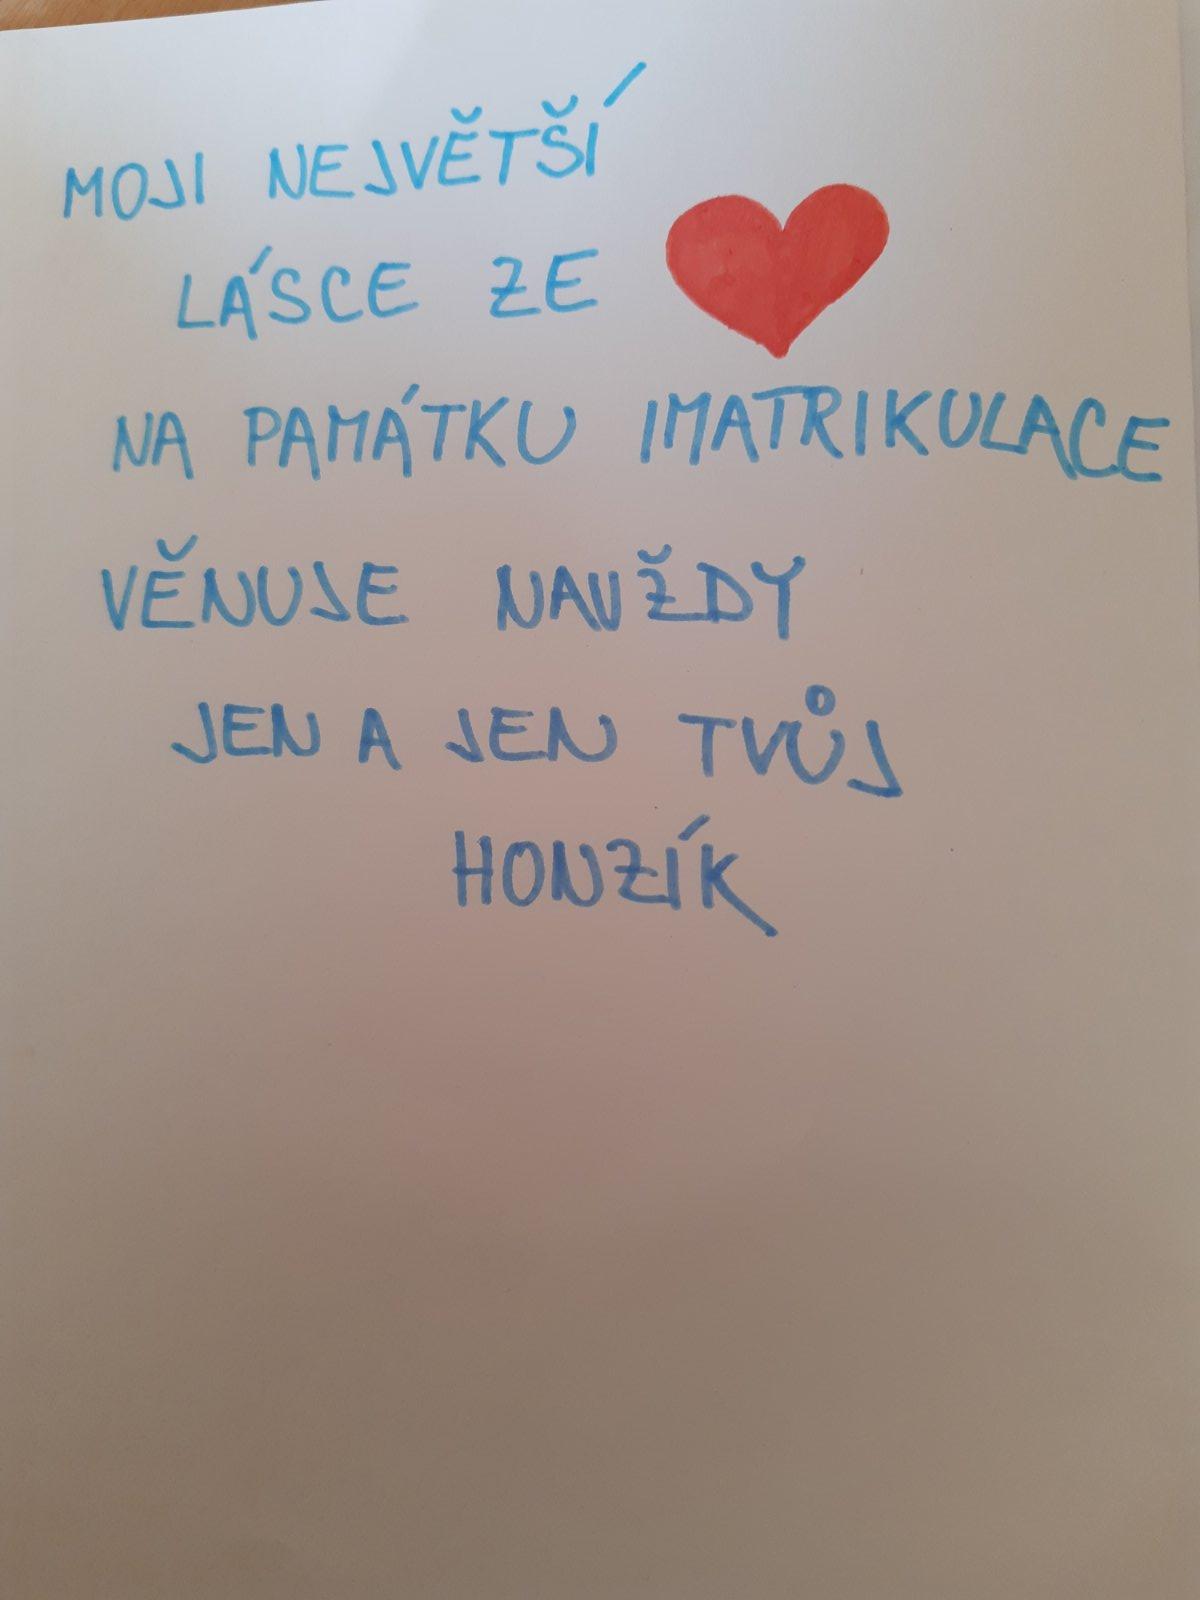 MOJI NEJVĚTŠÍ
LÁSCE ZE
NA PAMÁTKU IMATRIKULACE
VĚNUJE NAVŽDY
JEN A JEN TVŮJ
HONZÍK